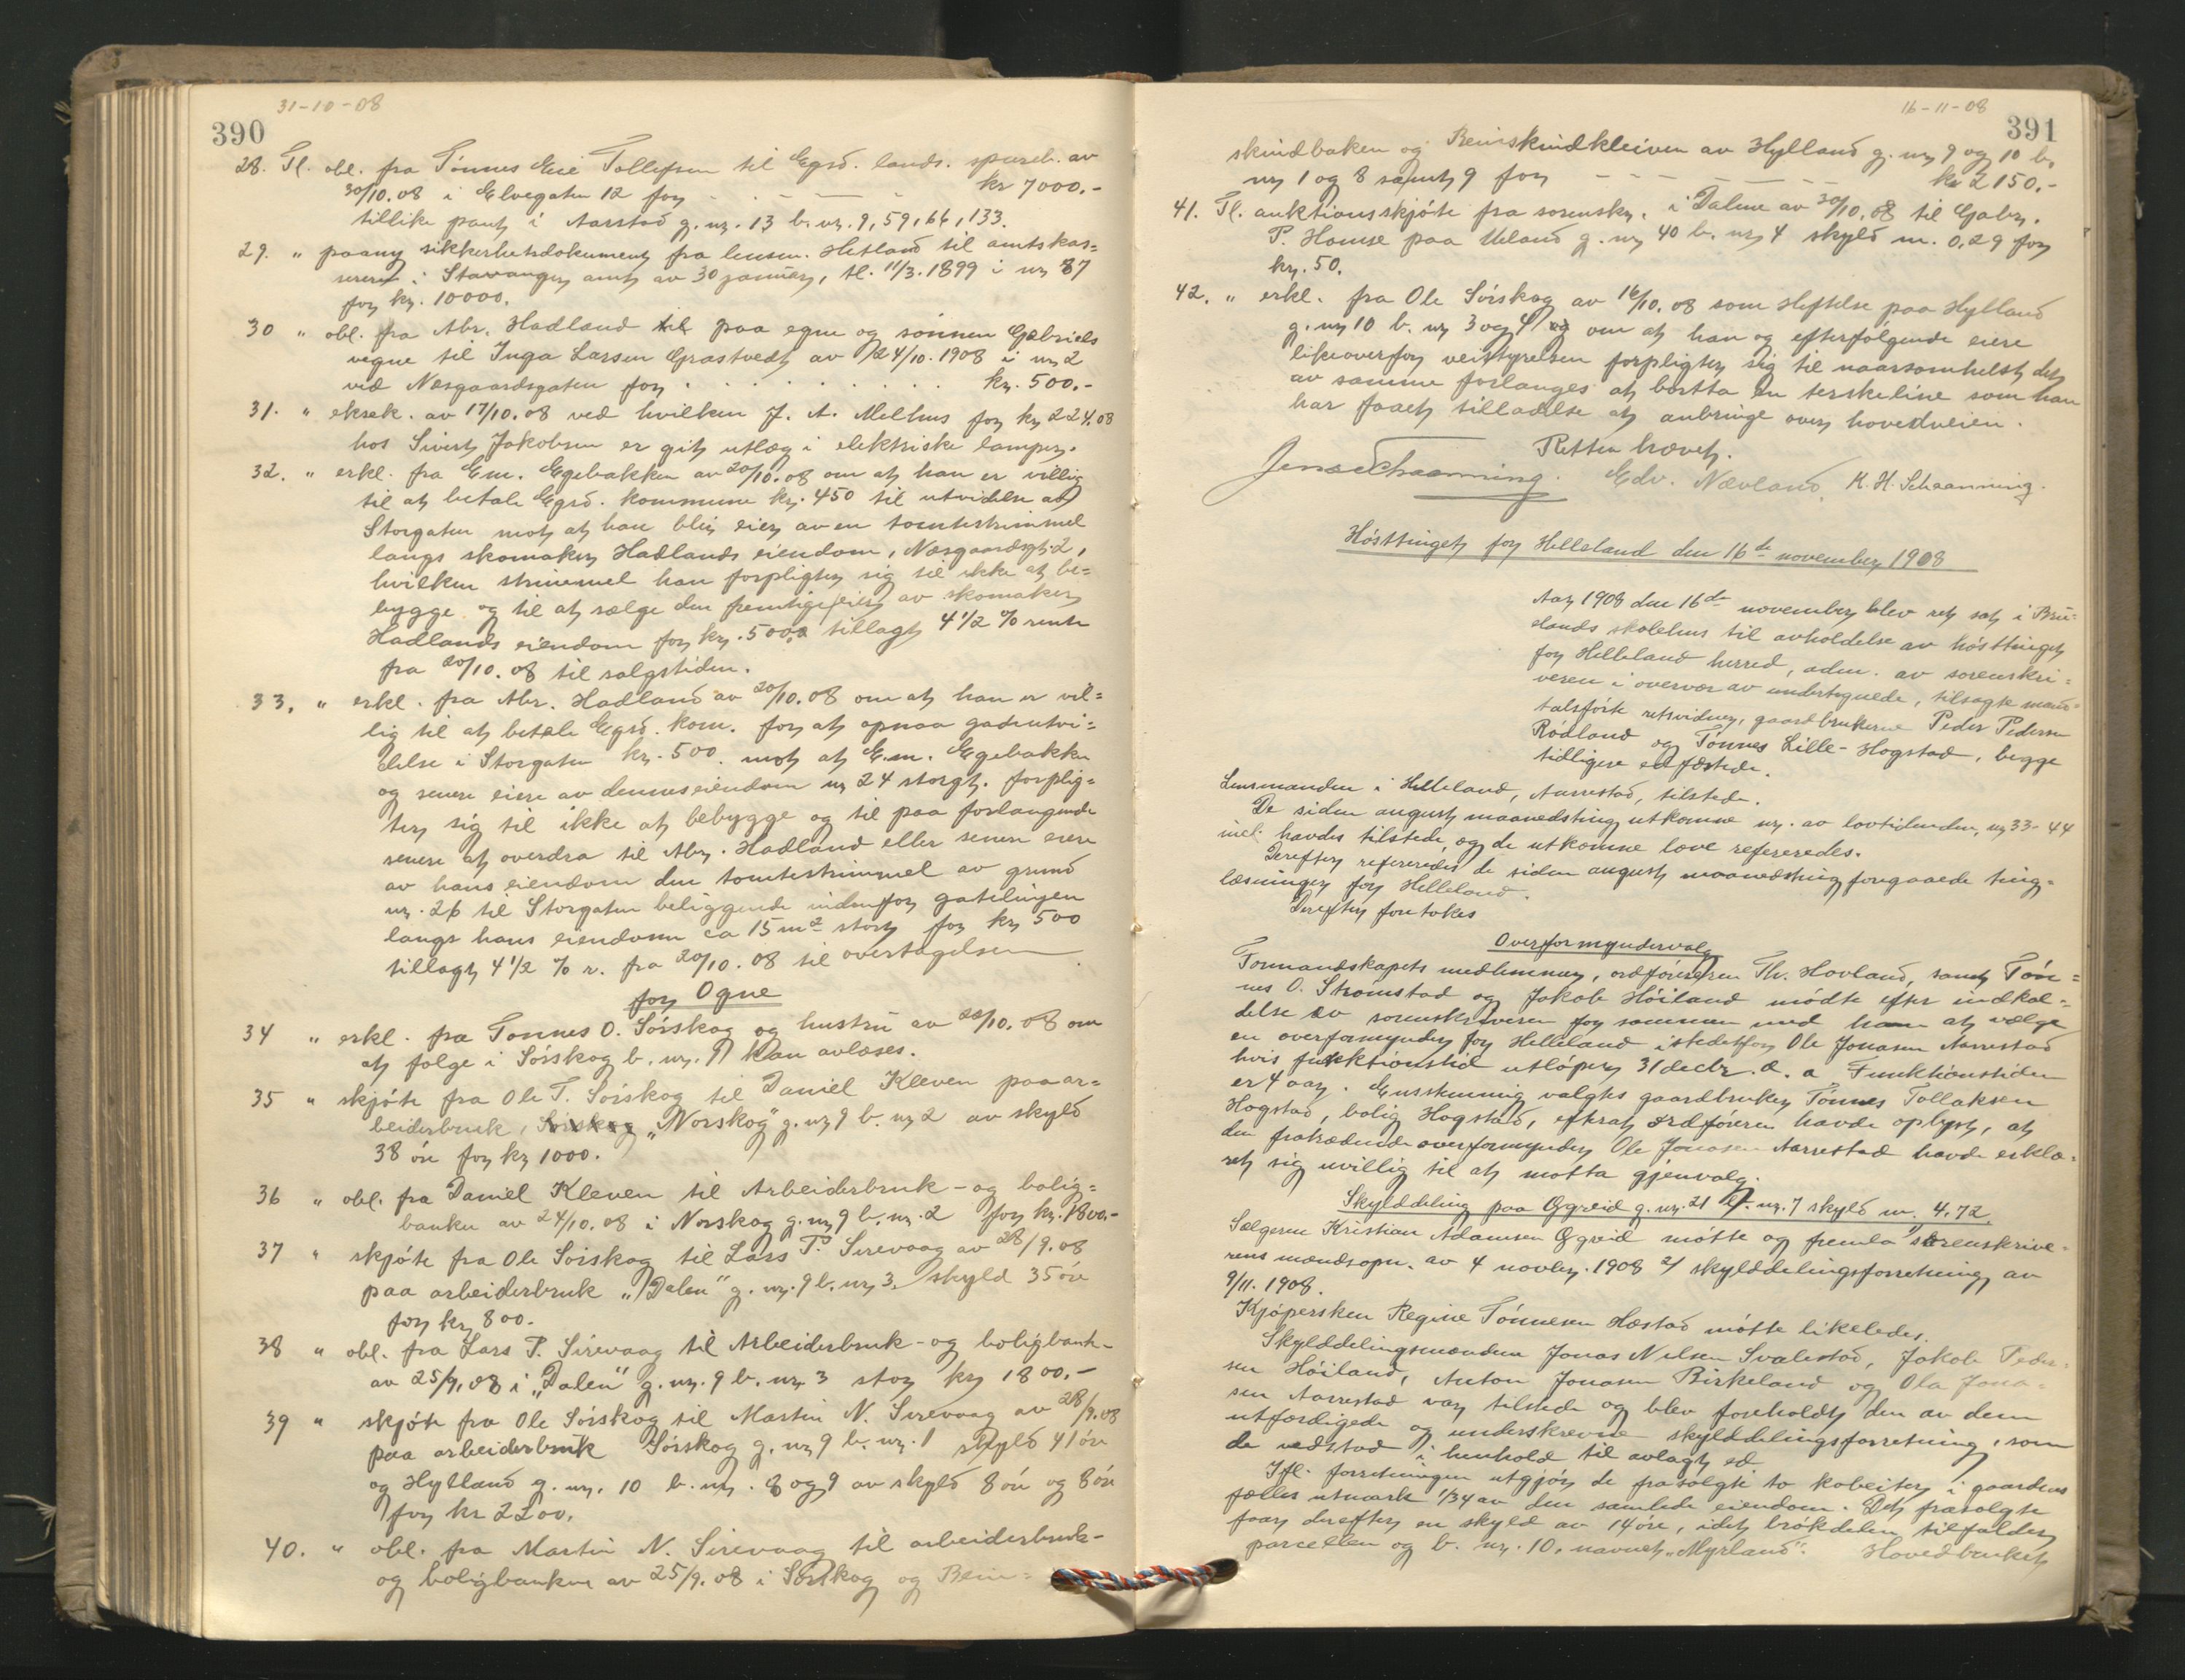 31-10-08
390
28. Tl. obl. fra Tönnes Eie Tollefsen til Egsd. lands. spareb. av
30/10.08 i Elvegaten 12 for - - - kr 7000.-
tillike pant i Aarstad g. nr. 13 b. nr. 9, 59, 66, 133.
29. " paany sikkerhetsdokument fra lensm. Hetland til amtskas=
sereren i Stavanger amt av 30 januar, tl. 11/3. 1899 i nr 87
for kr. 10000.
30 " obl. fra Abr. Hadland til paa egne og sönnen Gabriels
vegne til Inga Larsen Grastvedt av 24/10. 1908 i nr 2
ved Næsgaardsgaten for . . . . . . . kr. 500.-
31. " eksek. av 17/10.08 ved hvilken J. A. Melhus for kr 224.08
hos Sivert Jakobsen er git utlæg i elektriske lamper.
32. " erkl. fra Em. Egebakken av 20/10.08 om at han er villig
til at betale Egsd. kommune kr. 450 til utvidelse av
Storgaten mot at han blir eier av en tomtestrimmel
langs skomaker Hadlands eiendom, Næsgaardsgt. 2,
hvilken strimmel han forpligter sig til ikke at be=
bygge og til at sælge den fremtige eier av skomaker
Hadlands eiendom for kr. 500.- tillagt 4 1/2 % rente
fra 20/10. 08 til salgstiden.
33. " erkl. fra Abr. Hadland av 20/10.08 om at han er vil=
lig til at betale Egsd. kom. for at opnaa gadeutvi=
delse i Storgaten kr. 500. mot at Em. Egebakken
og senere eiere av dennes eiendom nr 24 storgt. forplig=
ter sig til ikke at bebygge og til paa forlangende
senere at overdra til Abr. Hadland eller senere eiere
av hans eiendom den tomtestrimmel av grund
nr. 26 til Storgaten beliggende indenfor gatelinjen
langs hans eiendom ca 15 m2 stort for kr 500
tillagt 4 1/2 % r. fra 20/10. 08 til overtagelsen.
for Ogne
34 " erkl. fra Tonnes O. Sörskog og hustru av 20/10. 08 om
at folge i Sörskog b. nr. 9 kan avlæses.
35 " skjöte fra Ole T. Sörskog til Daniel Kleven paa ar=
beiderbruk, Sörskog „Norskog" g. nr 9 b. nr 2 av skyld
38 öre for kr 1000.
36 " obl. fra Daniel Kleven til Arbeiderbruk- og bolig=
banken av 24/10. 08 i Norskog g. nr 9 b. nr. 2 for kr. 1800.-
37 " skjöte fra Ole Sörskog til Lars P. Sirevaag av 28/9. 08
paa arbeiderbruk „Dalen" g. nr. 9 b. nr 3, skyld 35 öre
for kr 800.
38 " obl. fra Lars P. Sirevaag til Arbeiderbruk- og boligbank-
av 25/9. 08 i „Dalen" g. nr. 9 b. nr 3 stor kr 1800.-
39 " skjöte fra Ole Sörskog til Martin N. Sirevaag av 28/9.08
paa arbeiderbruk Sörskog g. nr 9 b. nr. 1 skyld 41 öre
og Hylland g. nr. 10 b. nr. 8 og 9 av skyld 8 öre og 8 öre
for kr 2200.
40. " obl. fra Martin N. Sirevaag til arbeiderbruk-
og boligbanken av 25/9. 08 i Sörskog og Bein=
16-11-08
391
skindbaken og Beinskindkleiven av Hylland g. nr 9 og 10 b.
nr 1 og 8 samt 9 for - - - - - - kr 2150.-
41. Tl. auktionsskjöte fra sorenskr. i Dalene av 30/10. 08 til Gabr.
P. Homse paa Ueland g. nr 40 b. nr 4 skyld m. 0,29 for
kr. 50.
42. " erkl. fra Ole Sörskog av 16/10. 08 som heftelse paa Hylland
g. nr 10 b. nr 3 og 4 og om at han og efterfölgende eiere
likeoverfor veistyrelsen forpligter sig til naarsomhelst det
av samme forlanges at bortta en terskeline som han
har faaet tilladelse at anbringe over hovedveien.
Retten hævet.
Jens Schaanning. Edv. Nævland. K. H. Schaanning.
Hösttinget for Helleland den 16de november 1908
Aar 1908 den 16de november blev ret sat i Bru=
slands skolehus til avholdelse av hösttinget
for Helleland herred, adm. av sorenskri=
veren i overvær av undertegnede, tilsagte mand=
talsförte retsvidner, gaardbrukerne Peder Pedersen
Rödland og Tönnes Lille-Hogstad, begge
tidligere edfæstede.
Lensmanden i Helleland, Aarrestad, tilstede.
De siden august maanedsting utkomne nr. av lovtidenden, nr 33-44
incl. havdes tilstede, og de utkomne love refereredes.
Derefter refereredes de siden august maanedsting foregaaede ting=
læsninger for Helleland.
Derefter foretokes
Overformyndervalg
Formandskapets medlemmer, ordföreren Th. Hovland, samt Tön=
nes O. Strömstad og Jakob Höiland mödte efter indkal=
delse av sorenskriveren for sammen med ham at vælge
en overformynder for Helleland istedetfor Ole Jonasen Aarrestad
hvis funktionstid utlöper 31 decbr. d. a Funktionstiden
er 4 aar. Enstemmig valgtes gaardbruker Tönnes Tollaksen
Hogstad, bolig Hogstad, efterat ordföreren havde oplyst, at
den fratrædende overformynder Ole Jonasen Aarrestad havde erklæ=
ret sig uvillig til at motta gjenvalg.
Skylddeling paa Eggreid g. nr. 21 b. nr. 7 skyld m. 4.72.
Sælgeren Kristian Adamsen Eggreid mötte og fremla 1) sorenskrive=
rens mændsopn. av 4 novbr. 1908 2) skylddelingsforretning av
9/11. 1908.
Kjöpersken Regine Tönnesen Hæstad mötte likeledes.
Skylddelingsmændene Jonas Nilsen Svalestad, Jakob Peder=
sen Höiland, Anton Jonasen Birkeland og Ola Jona=
sen Aarrestad var tilstede og blev foreholdt den av dem
utfærdigede og underskrevne skylddelingsforretning, som
de vedstod i henhold til avlagt ed
Ifl. forretningen utgjör de frasolgte to kobeiter i gaardens
fælles utmark 1/34 av den samlede eiendom. Det frasolgte
faar derefter en skyld av 14 öre, idet brökdelen tilfalder
parcellen og b. nr. 10, navnet „Myrland". Hovedbruket